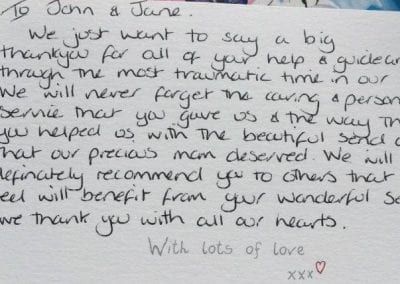 To John & Jane.
We just want to say a big
thankyou for all of your help & guidean
through the most traumatic time in our
We will never forget the caring & person
Service that you gave us & the way th
you helped us with the beautiful send o
that our precious mam deserved. We will
definately recommend you to others that
eel will benefit from your wonderful se
we thank you with all our hearts.
With lots of love
xxx